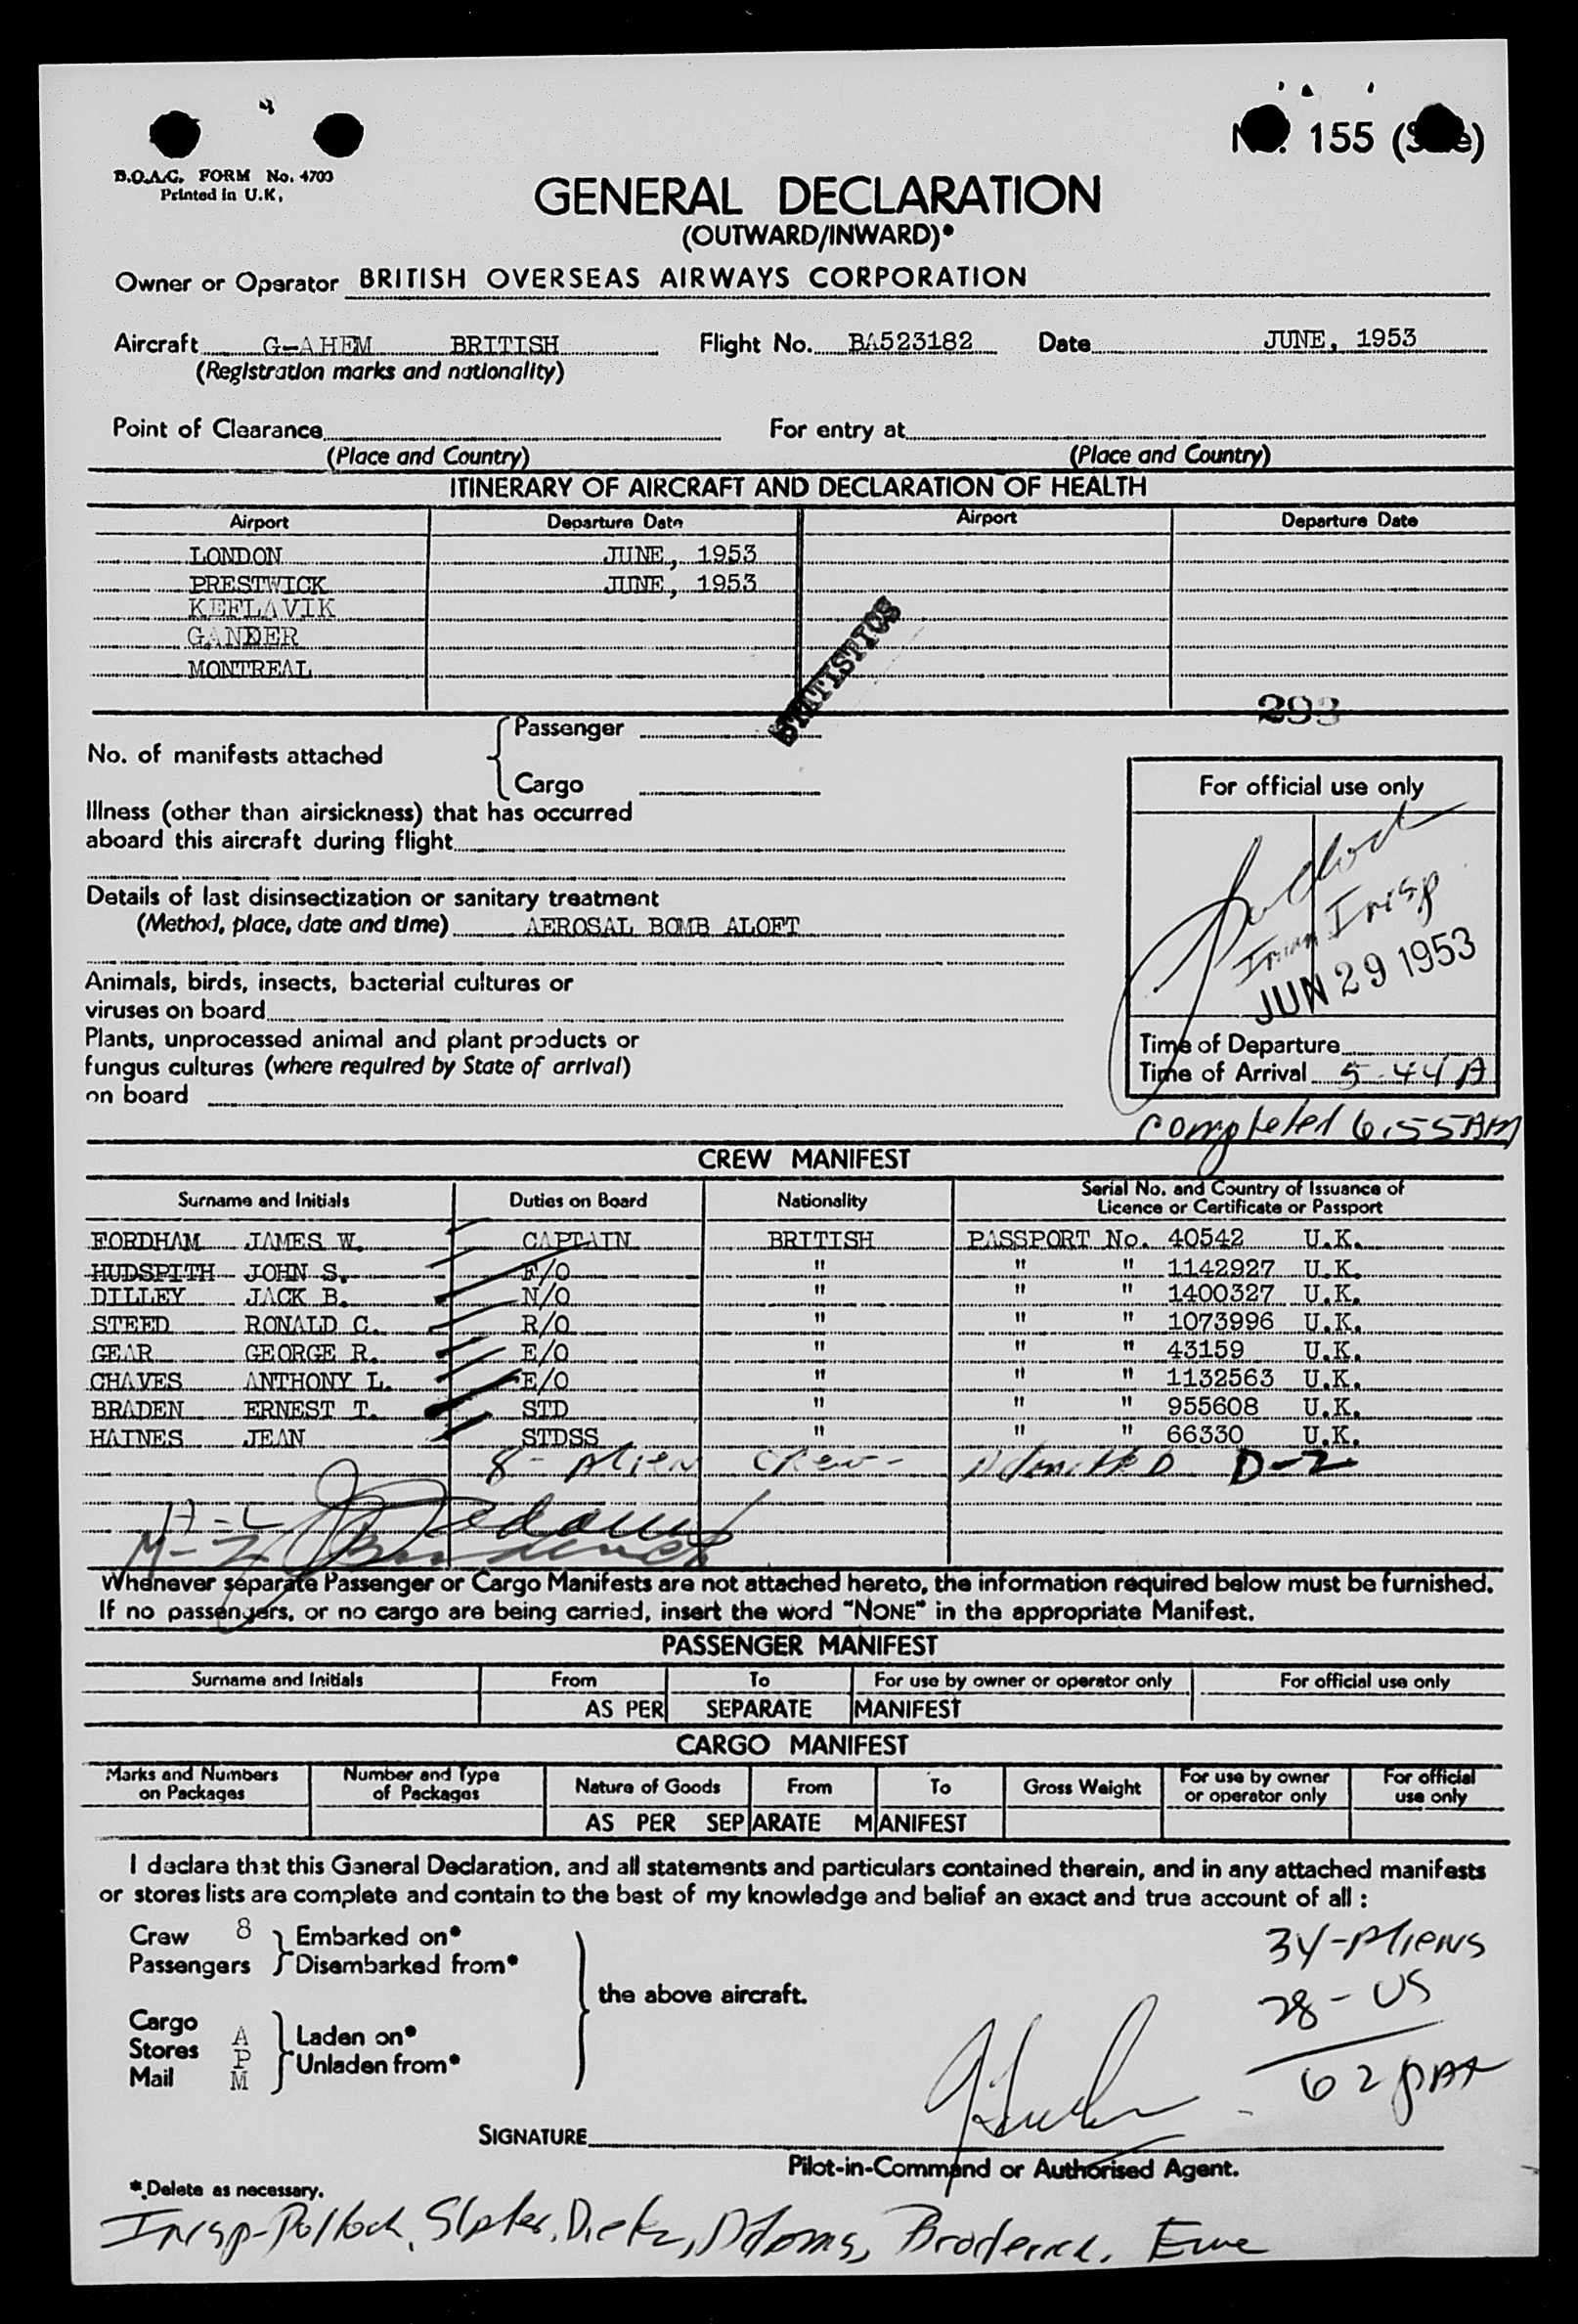 155
B.O.A.C. FORM No. 4703
Printed in U.K.
GENERAL DECLARATION
(OUTWARD/INWARD)*
Owner or Operator BRITISH OVERSEAS AIRWAYS CORPORATION
Aircraft G-AHEM BRITISH Flight No. BA523182 Date JUNE, 1953
(Registration marks and nationality)
Point of Clearance For entry at
(Place and Country) (Place and Country)
ITINERARY OF AIRCRAFT AND DECLARATION OF HEALTH
Airport Departure Date Airport Departure Date
LONDON JUNE, 1953
PRESTWICK JUNE, 1953
KEFLAVIK
GANDER
MONTREAL
STATISTICS
293
No. of manifests attached
Passenger
Cargo
For official use only
Illness (other than airsickness) that has occurred
aboard this aircraft during flight
Details of last disinsectization or sanitary treatment
(Method, place, date and time) AEROSAL BOMB ALOFT
Pollock
Imm Insp
JUN 29 1953
Animals, birds, insects, bacterial cultures or
viruses on board
Plants, unprocessed animal and plant products or
fungus cultures (where required by State of arrival)
on board
Time of Departure
Time of Arrival 5.44A
completed 6.55AM
CREW MANIFEST
Surname and Initials Duties on Board Nationality Serial No. and Country of Issuance of
Licence or Certificate or Passport
FORDHAM JAMES W. CAPTAIN BRITISH PASSPORT No. 40542 U.K.
HUDSPITH JOHN S. F/O " " " 1142927 U.K.
DILLEY JACK B. N/O " " " 1400327 U.K.
STEED RONALD C. R/O " " " 1073996 U.K.
GEAR GEORGE R. E/O " " " 43159 U.K.
CHAVES ANTHONY L. E/O " " " 1132563 U.K.
BRADEN ERNEST T. STD " " " 955608 U.K.
HAINES JEAN STDSS " " " 66330 U.K.
8 - Alien crew - Admitted D-2
Whenever separate Passenger or Cargo Manifests are not attached hereto, the information required below must be furnished.
If no passengers, or no cargo are being carried, insert the word "NONE" in the appropriate Manifest.
PASSENGER MANIFEST
Surname and Initials From To For use by owner or operator only For official use only
AS PER SEPARATE MANIFEST
CARGO MANIFEST
Marks and Numbers on Packages Number and Type of Packages Nature of Goods From To Gross Weight For use by owner or operator only For official use only
AS PER SEPARATE MANIFEST
I declare that this General Declaration, and all statements and particulars contained therein, and in any attached manifests
or stores lists are complete and contain to the best of my knowledge and belief an exact and true account of all :
Crew 8 Embarked on*
Passengers Disembarked from*
the above aircraft.
Cargo A Laden on*
Stores P Unladen from*
Mail M
34-Aliens
28-US
62 pax
SIGNATURE
Pilot-in-Command or Authorised Agent.
*Delete as necessary.
Insp-Pollock, Slater, Dietz, Adams, Broderick,